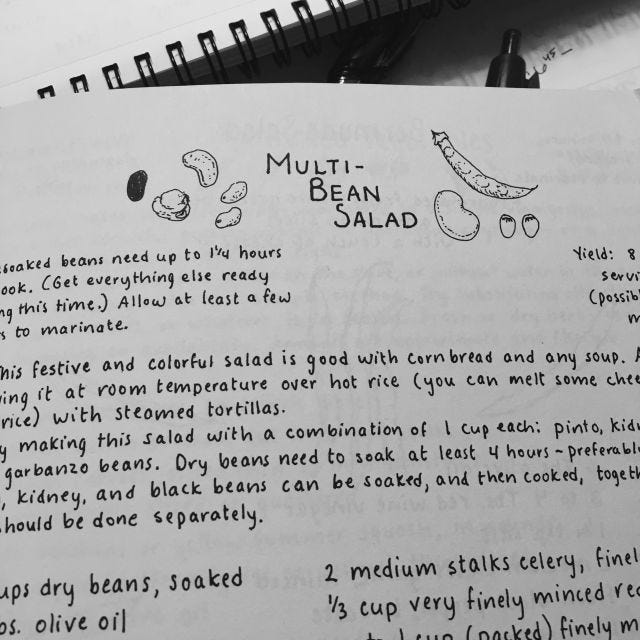 MULTI-
BEAN
SALAD
soaked beans need up to 1¼ hours
ook. (Get everything else ready
ng this time.) Allow at least a few
s to marinate.
Yield: 8
servi
(possib
m
his festive and colorful salad is good with cornbread and any soup. A
ving it at room temperature over hot rice (you can melt some chee
rice) with steamed tortillas.
y making this salad with a combination of 1 cup each: pinto, kidn
garbanzo beans. Dry beans need to soak at least 4 hours ~ preferably
, kidney, and black beans can be soaked, and then cooked, togeth
should be done separately.
ups dry beans, soaked
bs. olive oil
2 medium stalks celery, finel
⅓ cup very finely minced red
to 1 cup (packed) finely m